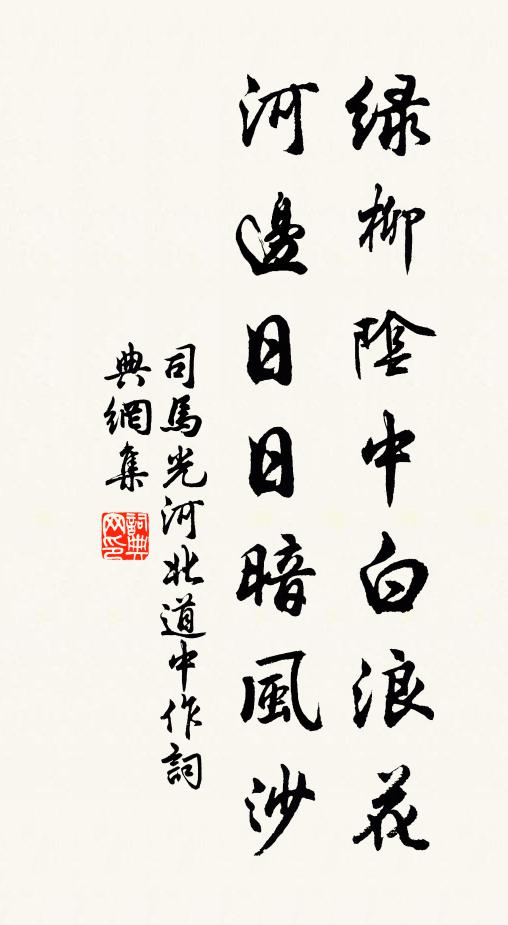 緑柳陰中白浪花
河邊日日暗風沙
司馬光河北道中作詞
典網集
詞典网印